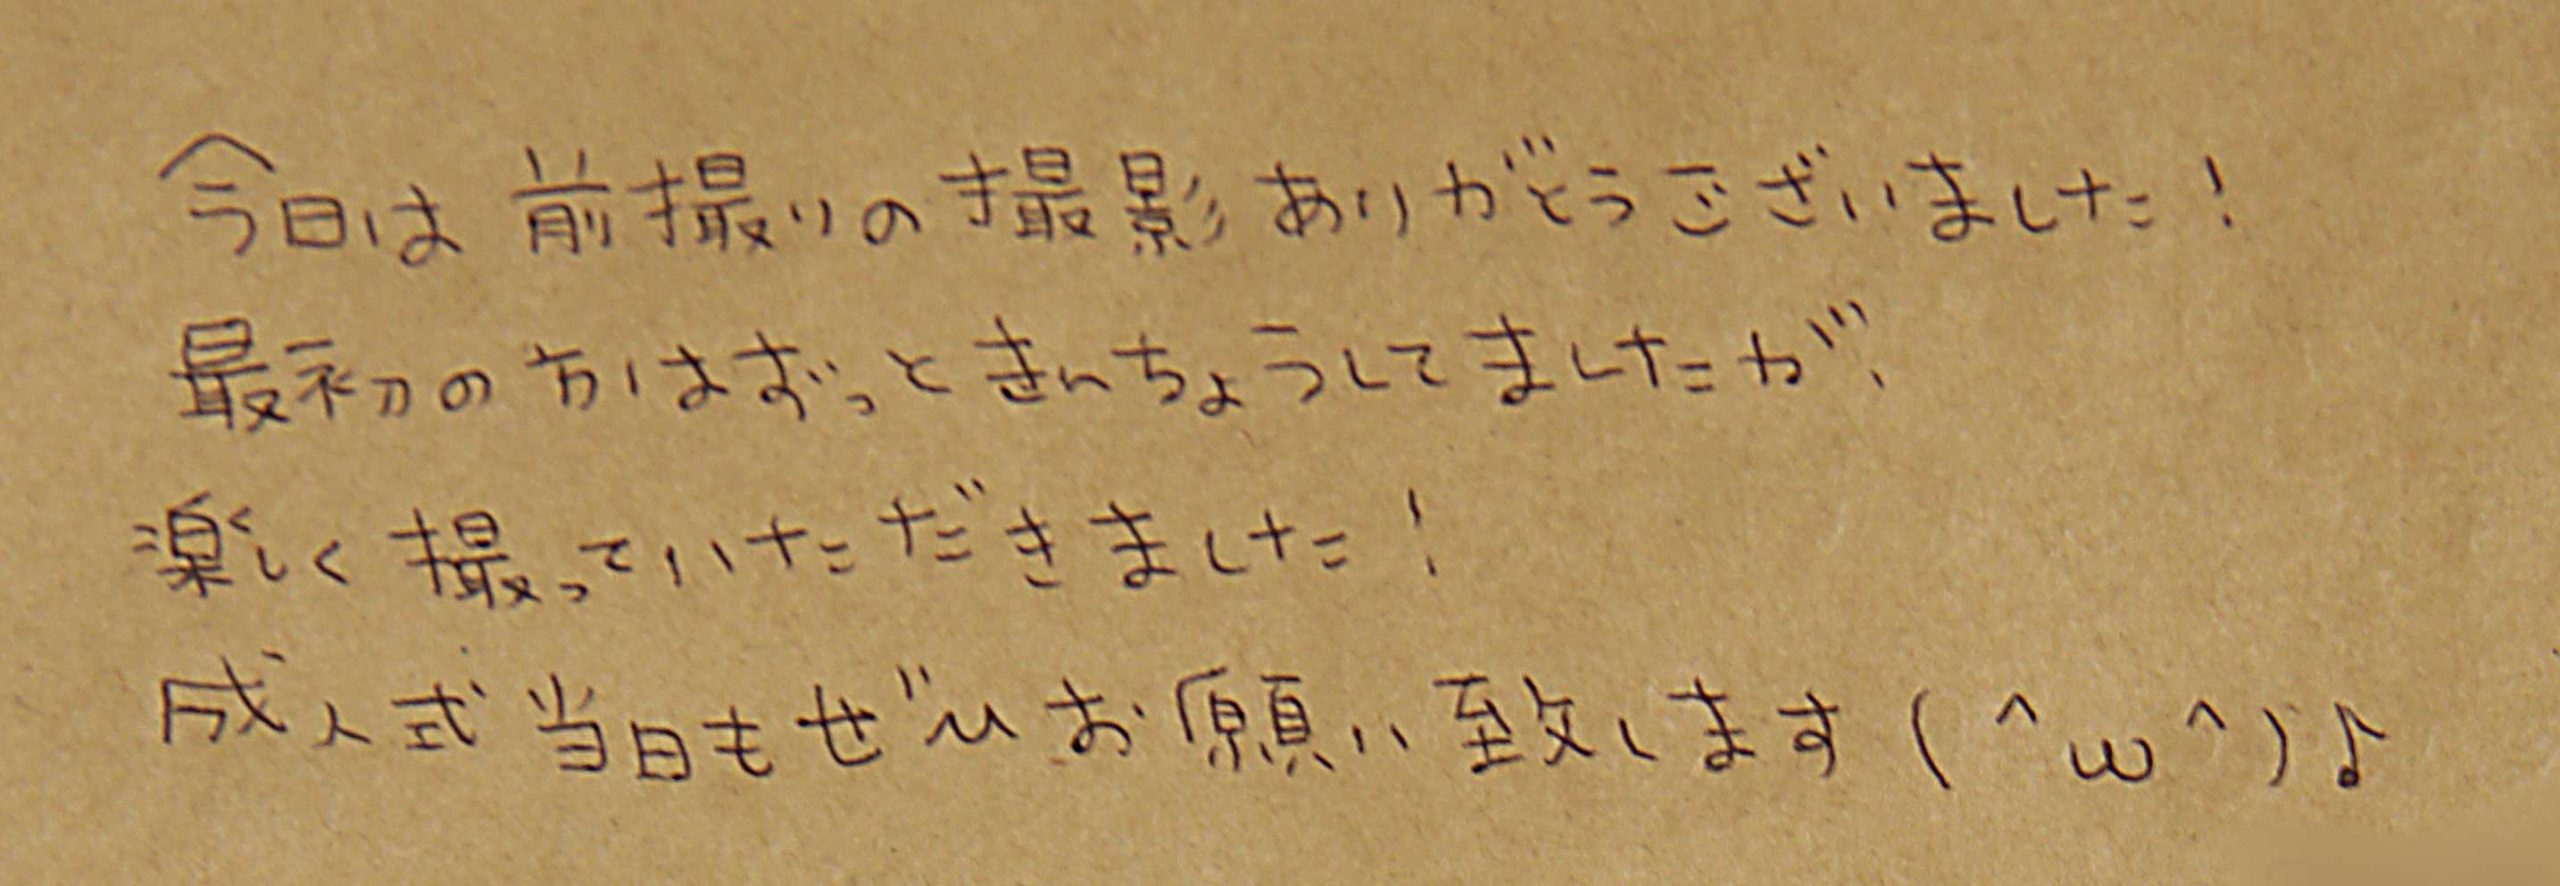 今日は前撮りの撮影ありがとうございました！
最初の方はずっときんちょうしてましたが、
楽しく撮っていただきました！
成人式当日もぜひお願い致します(^ω^)♪